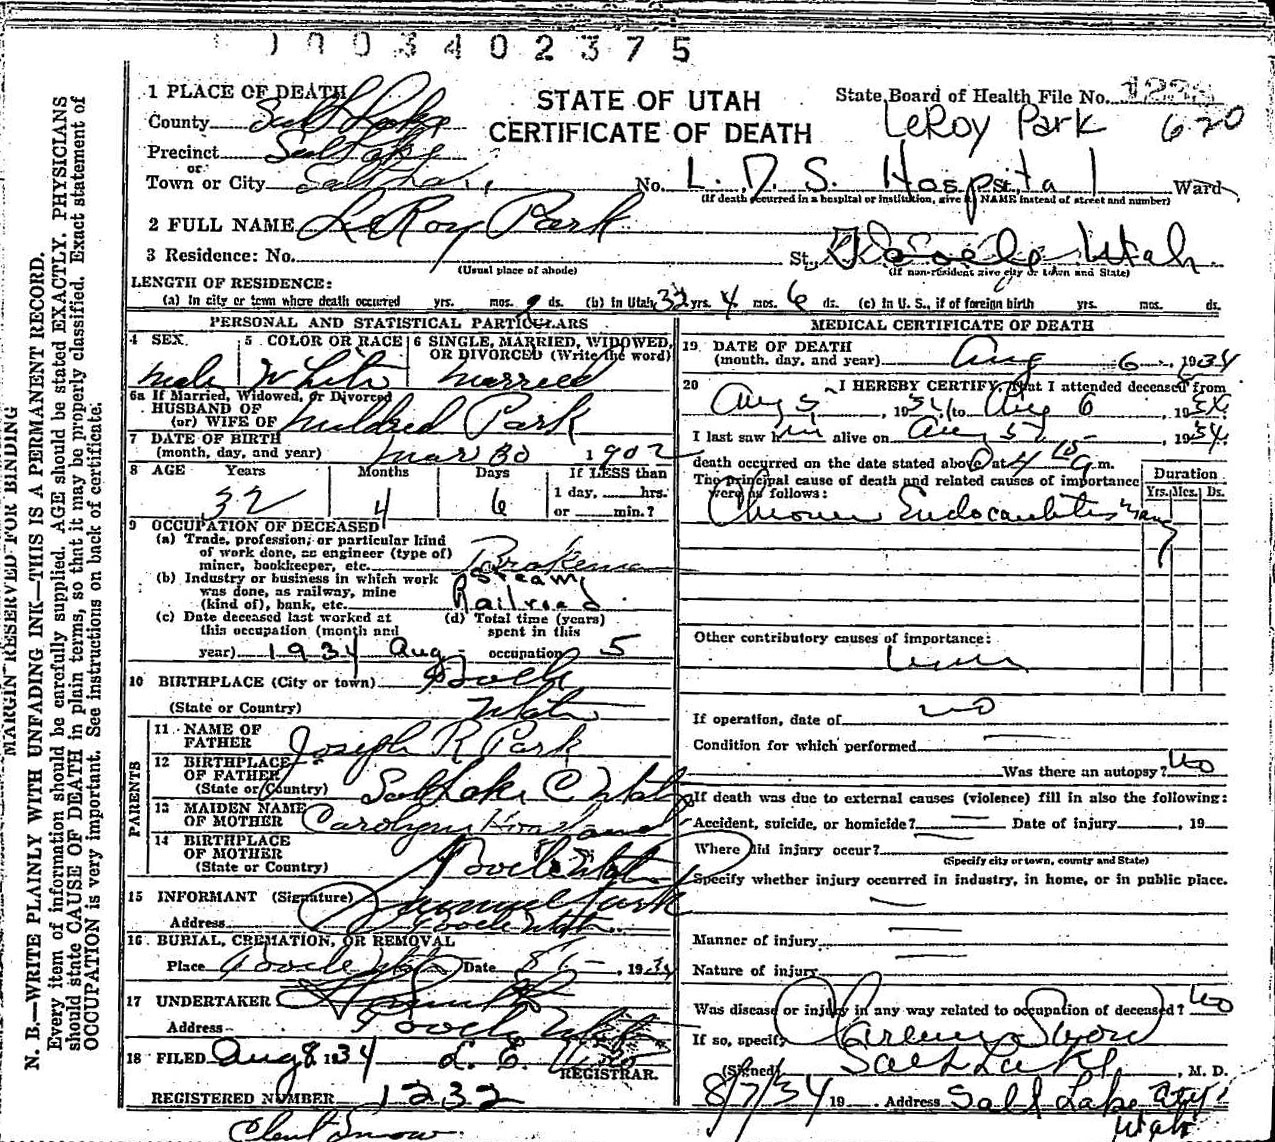 1003402375
1 PLACE OF DEATH
County Salt Lake
Precinct Salt Lake
or
Town or City Salt Lake No. L. D. S. Hospital St., Ward
(If death occurred in a hospital or institution, give its NAME instead of street and number)
STATE OF UTAH
CERTIFICATE OF DEATH
State Board of Health File No.
LeRoy Park 620
2 FULL NAME LeRoy Park
3 Residence: No. St., Tooele Utah
(Usual place of abode) (If non-resident give city or town and State)
LENGTH OF RESIDENCE:
(a) In city or town where death occurred yrs. mos. 2 ds. (b) In Utah 32 yrs. 4 mos. 6 ds. (c) In U. S., if of foreign birth yrs. mos. ds.
PERSONAL AND STATISTICAL PARTICULARS
4 SEX 5 COLOR OR RACE 6 SINGLE, MARRIED, WIDOWED, OR DIVORCED (Write the word)
Male White Married
6a If Married, Widowed, or Divorced
HUSBAND OF
(or) WIFE OF Mildred Park
7 DATE OF BIRTH
(month, day, and year) Mar 30 1902
8 AGE Years Months Days If LESS than
32 4 6 1 day, hrs.
or min.?
9 OCCUPATION OF DECEASED
(a) Trade, profession, or particular kind
of work done, as engineer (type of)
miner, bookkeeper, etc. Brakeman
(b) Industry or business in which work
was done, as railway, mine
(kind of), bank, etc. Steam Railroad
(c) Date deceased last worked at
this occupation (month and
year) 1934 Aug
(d) Total time (years)
spent in this
occupation 5
10 BIRTHPLACE (City or town) Tooele
(State or Country) Utah
PARENTS
11 NAME OF
FATHER Joseph R Park
12 BIRTHPLACE
OF FATHER
(State or Country) Salt Lake C Utah
13 MAIDEN NAME
OF MOTHER Carolyn
14 BIRTHPLACE
OF MOTHER
(State or Country) Tooele Utah
15 INFORMANT (Signature) Park
Address Tooele Utah
16 BURIAL, CREMATION, OR REMOVAL
Place Tooele Utah Date 8 , 1934
17 UNDERTAKER
Address Tooele Utah
18 FILED Aug 8 1934 L. E.
REGISTRAR.
REGISTERED NUMBER 1232
Clent Snow
MEDICAL CERTIFICATE OF DEATH
19 DATE OF DEATH
(month, day, and year) Aug 6 1934
20 I HEREBY CERTIFY, That I attended deceased from
Aug 5, 1934 to Aug 6, 1934
I last saw him alive on Aug 5, 1934
death occurred on the date stated above at 4 10 a m.
The principal cause of death and related causes of importance
were as follows: Duration
Yrs. Mos. Ds.
Chronic Endocarditis many
Other contributory causes of importance:
If operation, date of no
Condition for which performed
Was there an autopsy? No
If death was due to external causes (violence) fill in also the following:
Accident, suicide, or homicide? Date of injury , 19
Where did injury occur?
(Specify city or town, county and State)
Specify whether injury occurred in industry, in home, or in public place.
Manner of injury
Nature of injury
Was disease or injury in any way related to occupation of deceased? No
If so, specify
Salt Lake
(Signed) , M. D.
8/7/34 19 Address Salt Lake City
Utah
MARGIN RESERVED FOR BINDING
N. B.—WRITE PLAINLY WITH UNFADING INK—THIS IS A PERMANENT RECORD.
Every item of information should be carefully supplied. AGE should be stated EXACTLY. PHYSICIANS
should state CAUSE OF DEATH in plain terms, so that it may be properly classified. Exact statement of
OCCUPATION is very important. See instructions on back of certificate.